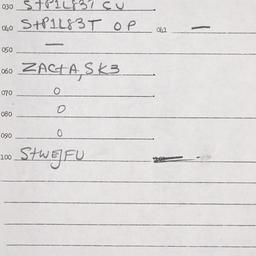 030 S+P1L83T CU
040 S+P1L83T OP 041 —
050 —
060 ZAC+A,SK3
070 0
080 0
090 0
100 S+WEJFU